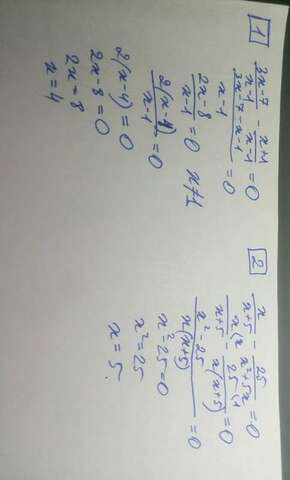 1
(3x-7)/(x-1) - (x+1)/(x-1) = 0
(3x-7-x-1)/(x-1) = 0
(2x-8)/(x-1) = 0 x≠1
2(x-4)/(x-1) = 0
2(x-4) = 0
2x-8 = 0
2x = 8
x = 4
2
x/(x+5) - 25/(x²+5x) = 0
x(x/(x+5) - 25(1/(x(x+5)) = 0
(x²-25)/(x(x+5)) = 0
x²-25 = 0
x² = 25
x = 5.